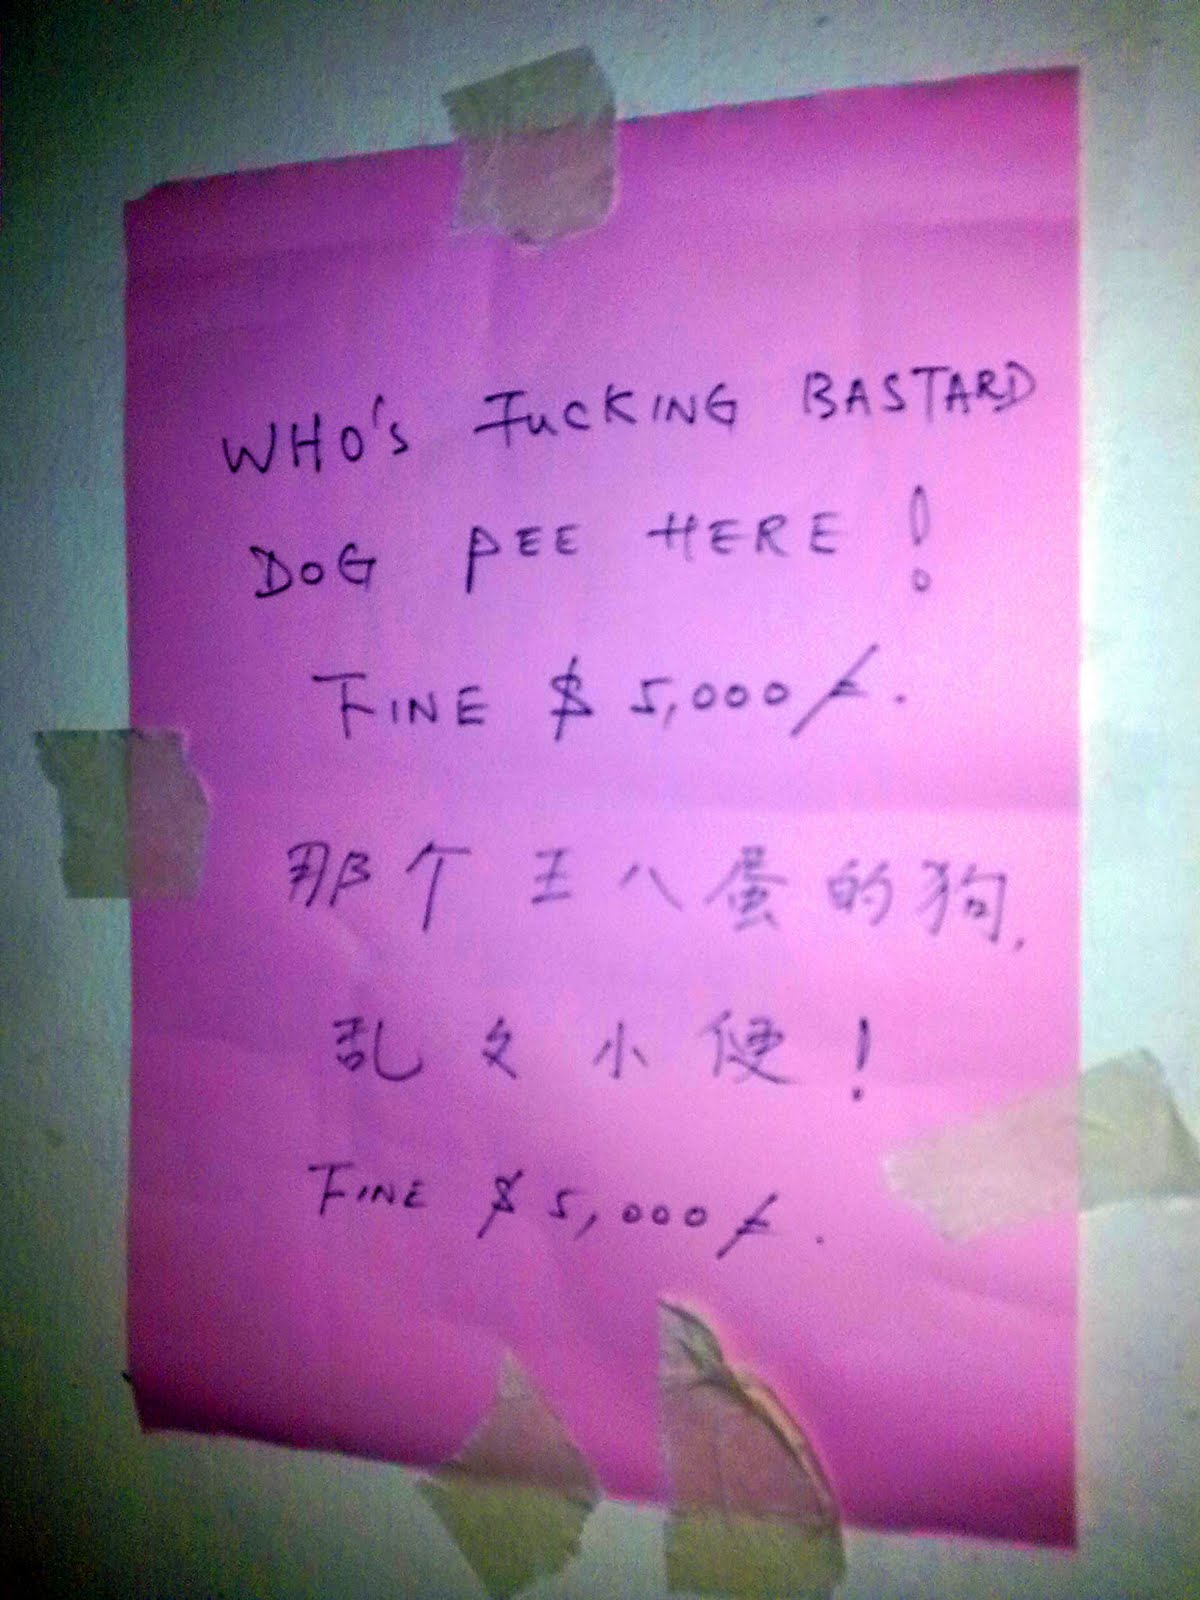 WHO'S FUCKING BASTARD
DOG PEE HERE!
FINE $5,000/=.
那个王八蛋的狗,
乱文小便!
FINE $5,000/=.